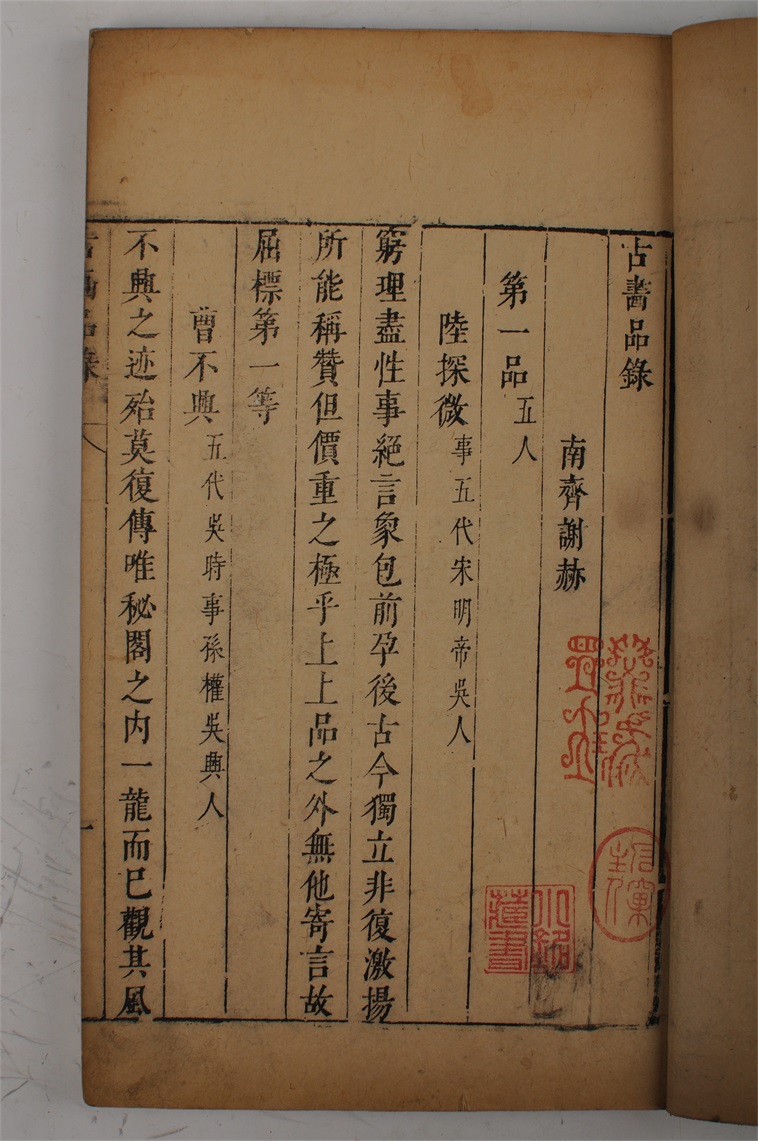 古畫品錄
南齊謝赫
第一品五人
陸探微事五代宋明帝吳人
窮理盡性事絕言象包前孕後古今獨立非復激揚
所能稱贊但價重之極乎上上品之外無他寄言故
屈標第一等
曹不興五代吳時事孫權吳興人
不興之迹殆莫復傳唯秘閣之内一龍而巳觀其風
古畫品錄
一
小銘
藏書